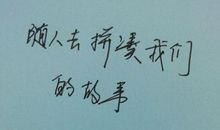 随人去拼凑我们
的故事